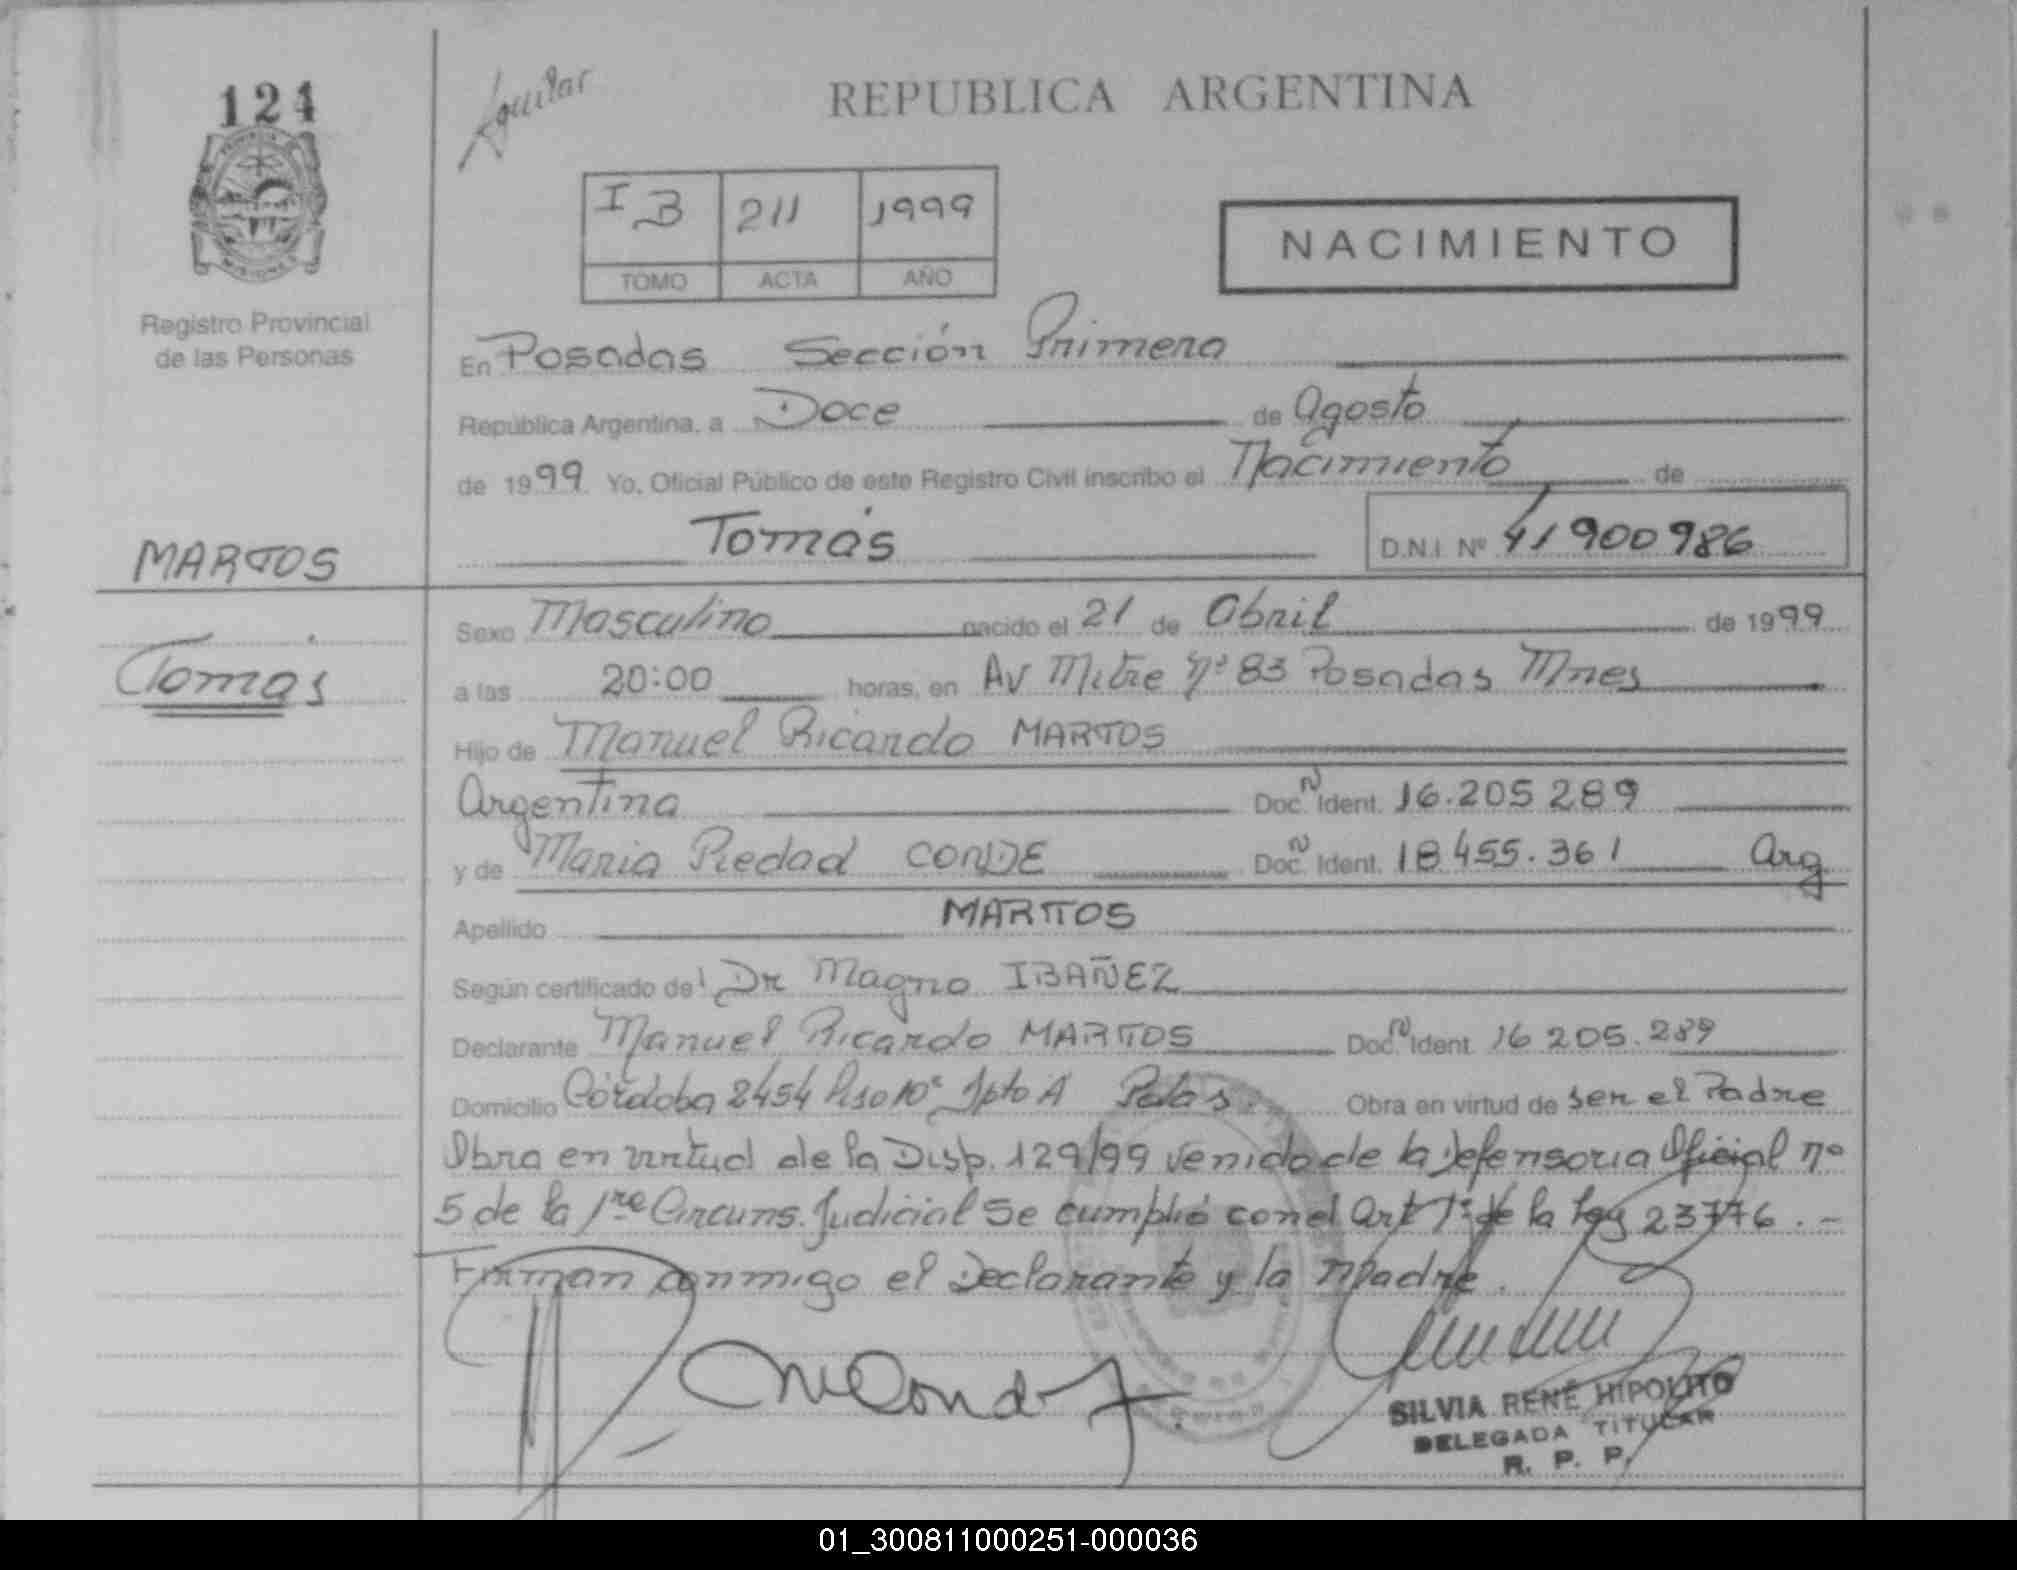 124
Aguilar
REPUBLICA ARGENTINA
I B 211 1999
TOMO ACTA AÑO
NACIMIENTO
Registro Provincial
de las Personas
En Posadas Sección Primera
República Argentina, a Doce de Agosto
de 1999 Yo, Oficial Público de este Registro Civil inscribo el Nacimiento de
Tomás D.N.I. Nº 41900986
MARTOS
Tomás
Sexo Masculino nacido el 21 de Abril de 1999
a las 20:00 horas, en Av Mitre Nº 83 Posadas Mnes
Hijo de Manuel Ricardo MARTOS
Argentina Doc. N Ident. 16.205 289
y de Maria Piedad CONDE Doc. N Ident. 18 455.361 Arg
Apellido MARTOS
Según certificado del Dr Magno IBAÑEZ
Declarante Manuel Ricardo MARTOS Doc. N Ident. 16 205.289
Domicilio Córdoba 2454 Piso 10º Dpto A Pdas Obra en virtud de ser el Padre
Obra en virtud de la Disp. 129/99 venida de la Defensoria Oficial nº
5 de la 1re Circuns. Judicial Se cumplió con el Art 1º de la Ley 23776.-
Firman conmigo el Declarante y la Madre.
SILVIA RENÉ HIPOLITO
DELEGADA TITULAR
R. P. P.
01_300811000251-000036